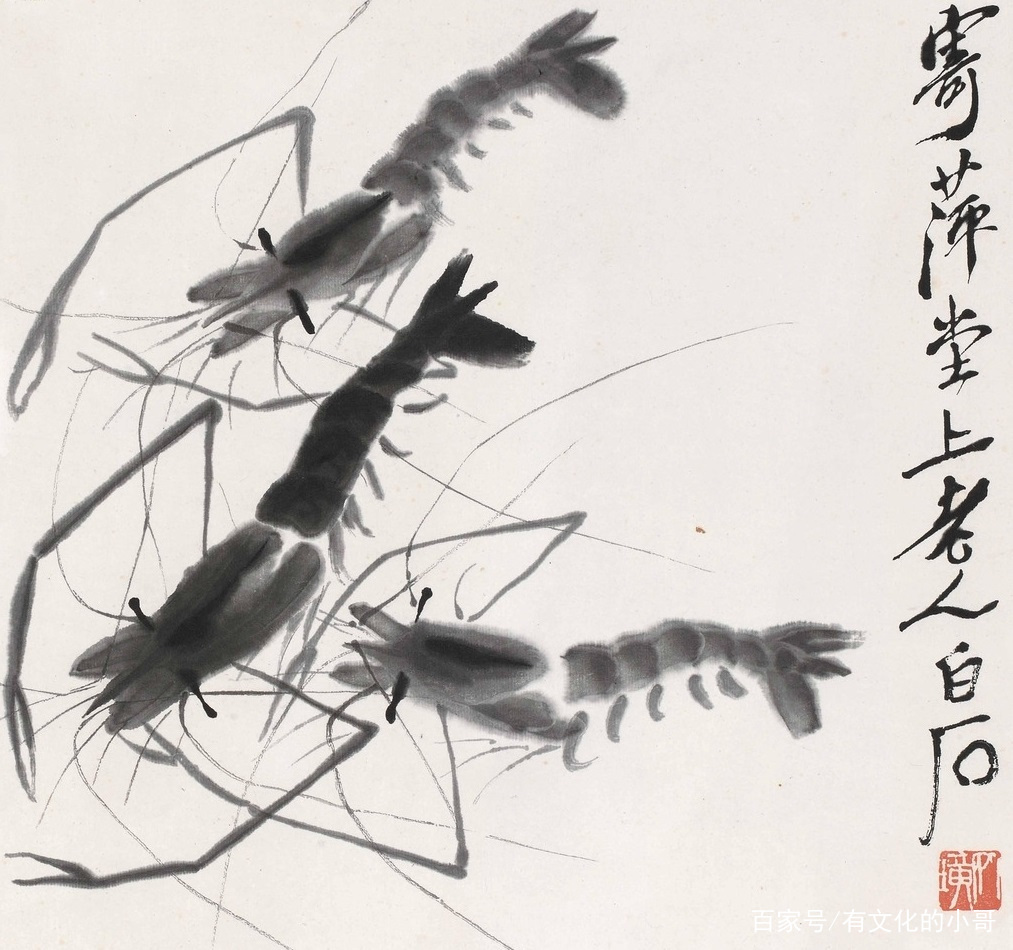 寄萍堂上老人白石
木人
百家号/有文化的小哥